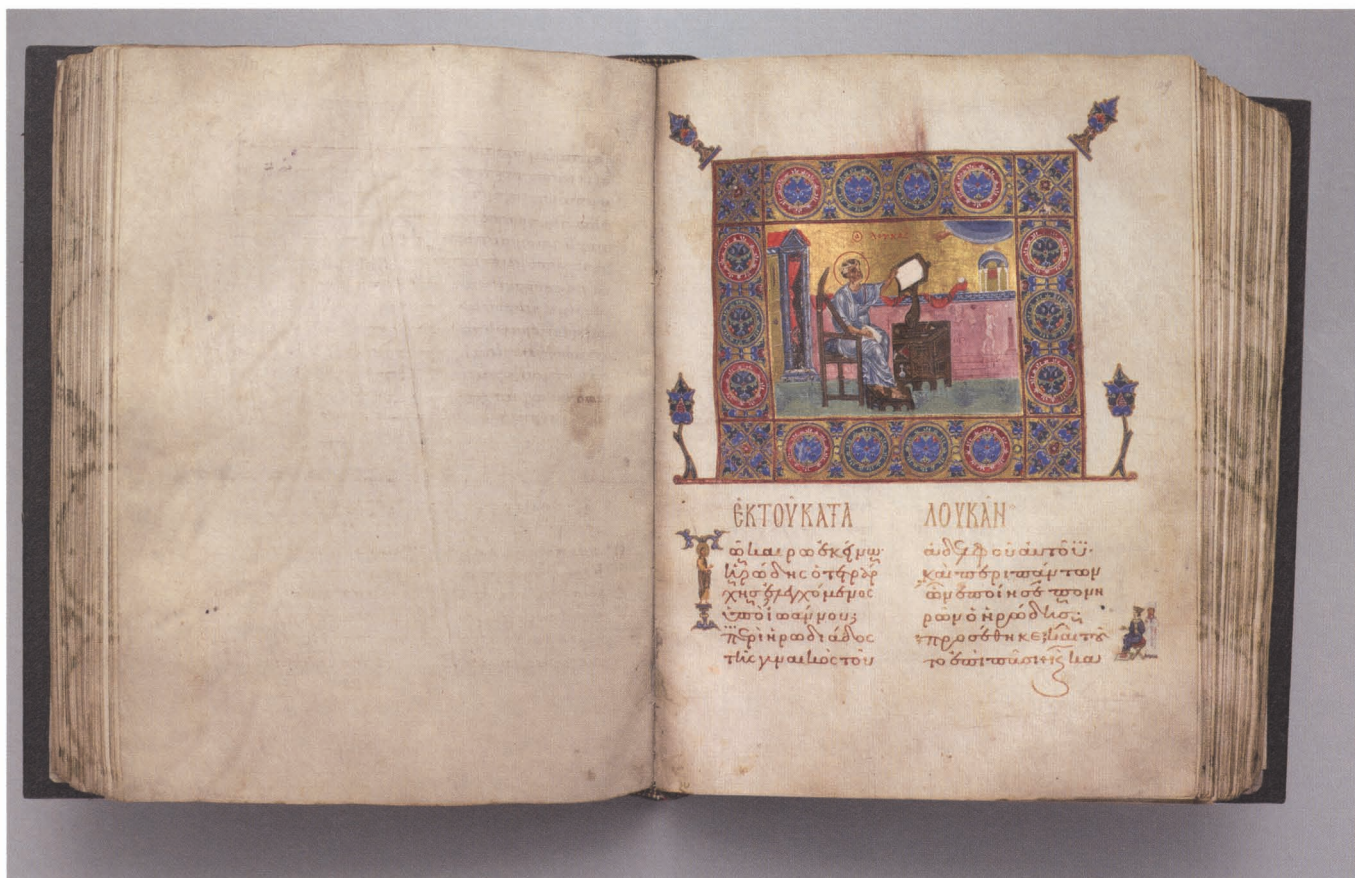 Ο ΛΟΥΚΑΣ
ἘΚ ΤΟΥ ΚΑΤΑ ΛΟΥΚΑΝ
Τῶ καιρῶ ἐκείνω·
ἡρώδης ὁ τετράρ
χης ἐλεγχόμενος
ὑπὸ ἰωάννου
περὶ ἡρωδιάδος
τῆς γυναικὸς τοῦ
ἀδελφοῦ αὐτοῦ·
καὶ περὶ πάντων
ὧν ἐποίησε πονη
ρῶν ὁ ἡρώδης
προσέθηκε καὶ τοῦ
το ἐπὶ πᾶσι καὶ